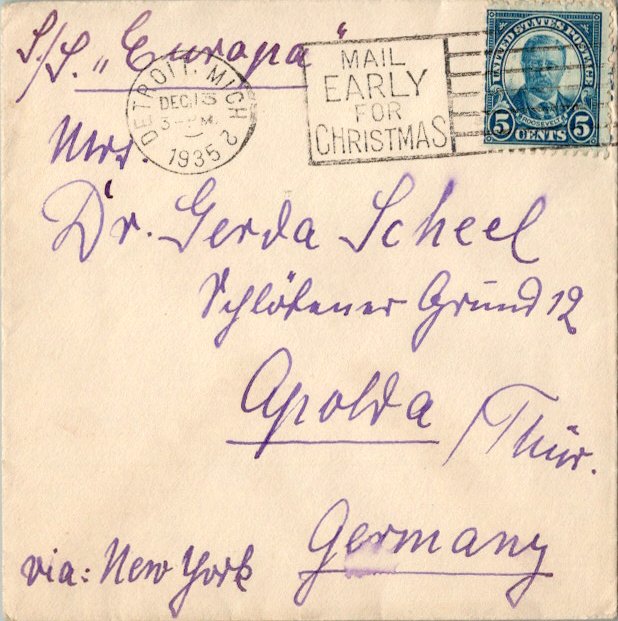 S/S. „Europa"
DETROIT, MICH
DEC 13
3-PM
1935
2
MAIL
EARLY
FOR
CHRISTMAS
UNITED STATES POSTAGE
ROOSEVELT
5 CENTS 5
Mrs.
Dr. Gerda Scheel
Schlötener Grund 12
Apolda
/Thür.
Germany
via: New York